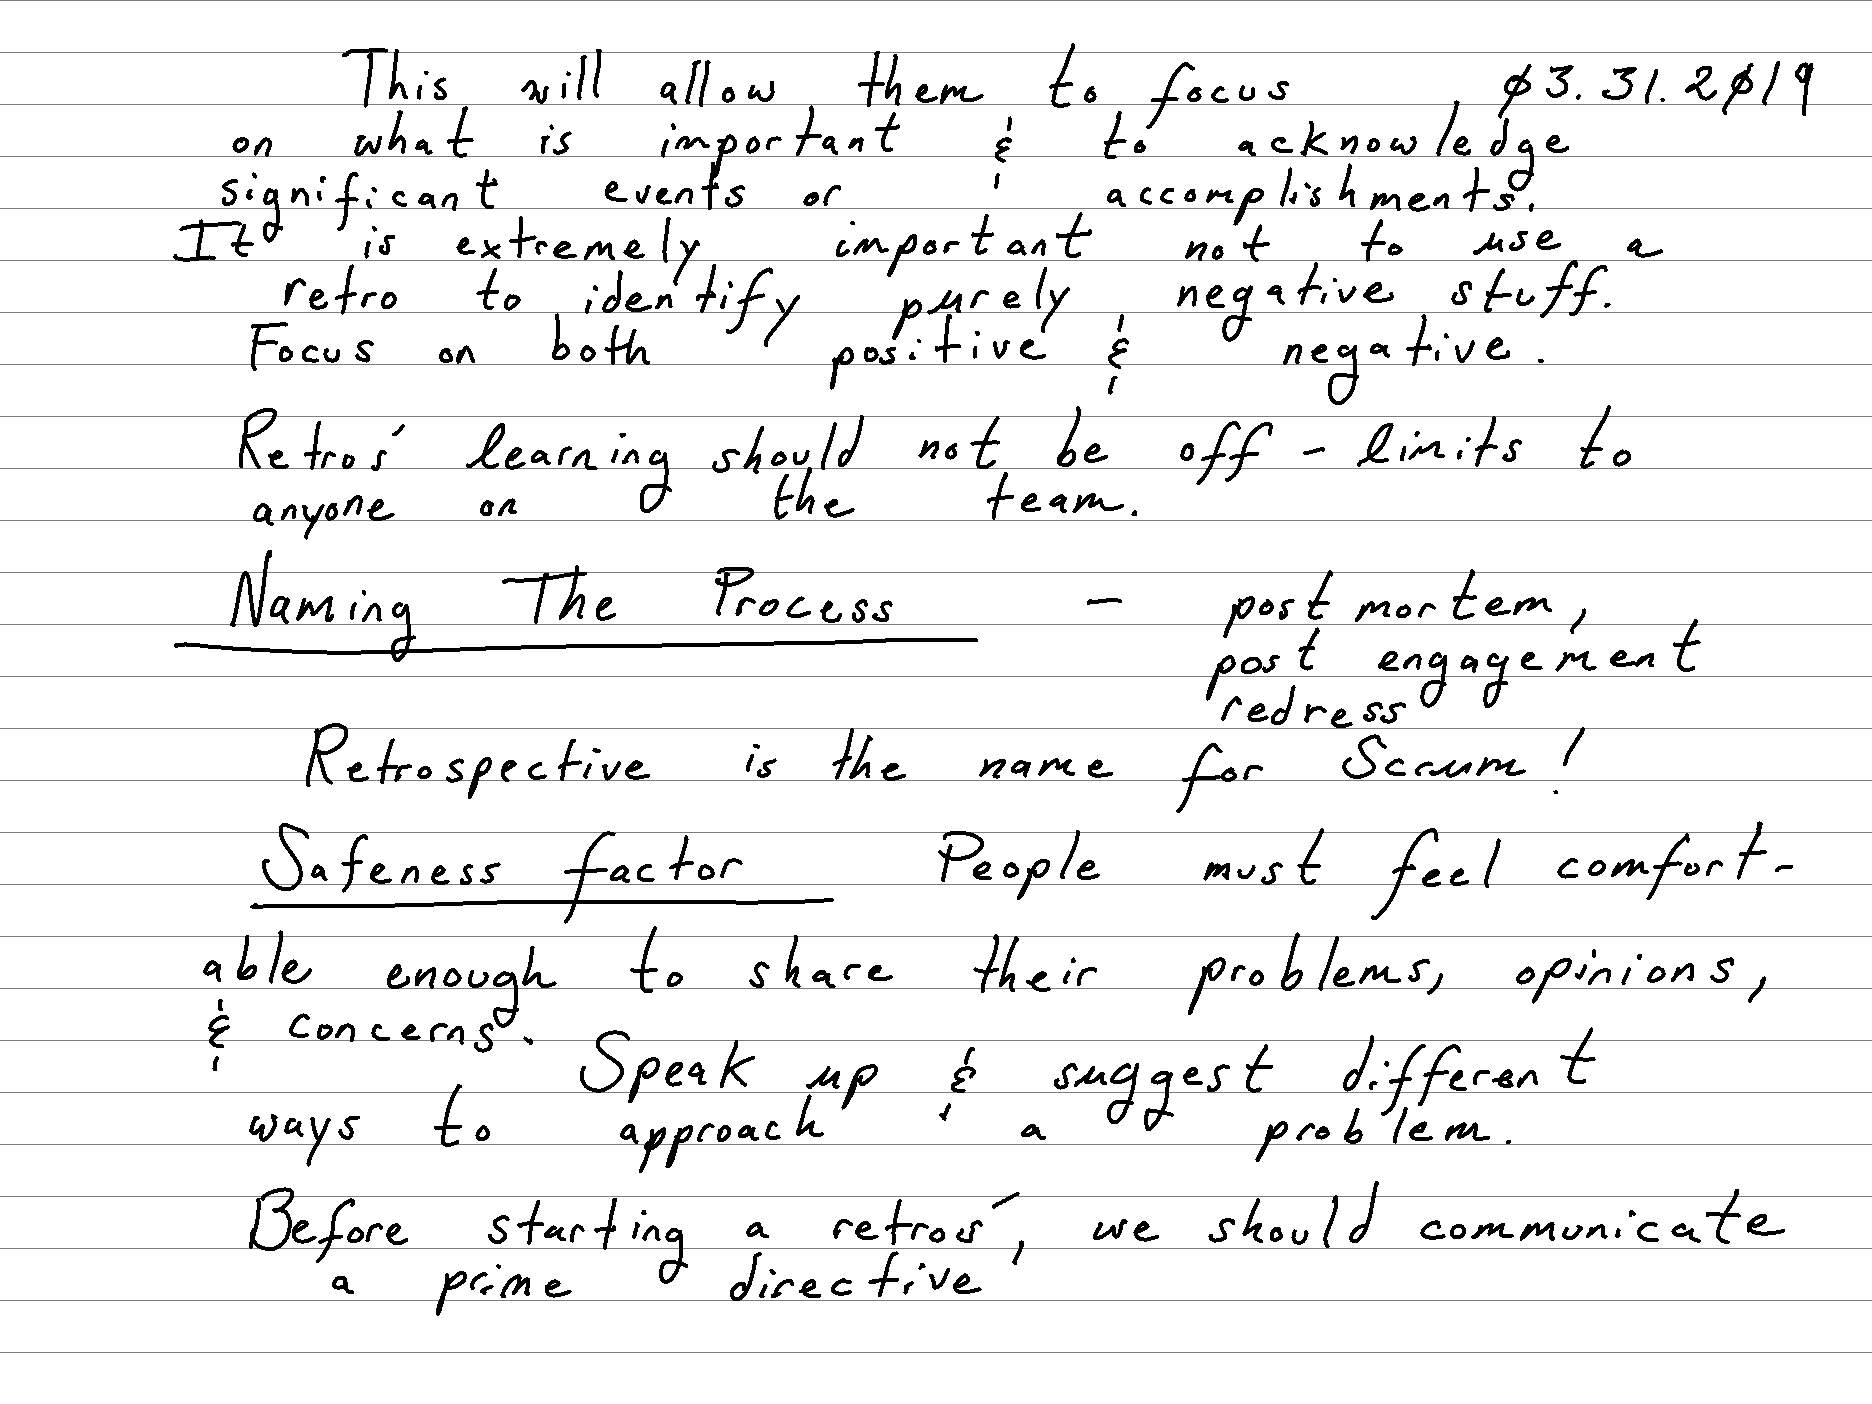 This will allow them to focus ø3.31.2ø19
on what is important & to acknowledge
significant events or accomplishments.
It is extremely important not to use a
retro to identify purely negative stuff.
Focus on both positive & negative.
Retros' learning should not be off-limits to
anyone on the team.
Naming The Process – post mortem,
post engagement
redress
Retrospective is the name for Scrum!
Safeness factor People must feel comfort-
able enough to share their problems, opinions,
& concerns.
Speak up & suggest different
ways to approach a problem.
Before starting a retros', we should communicate
a prime directive